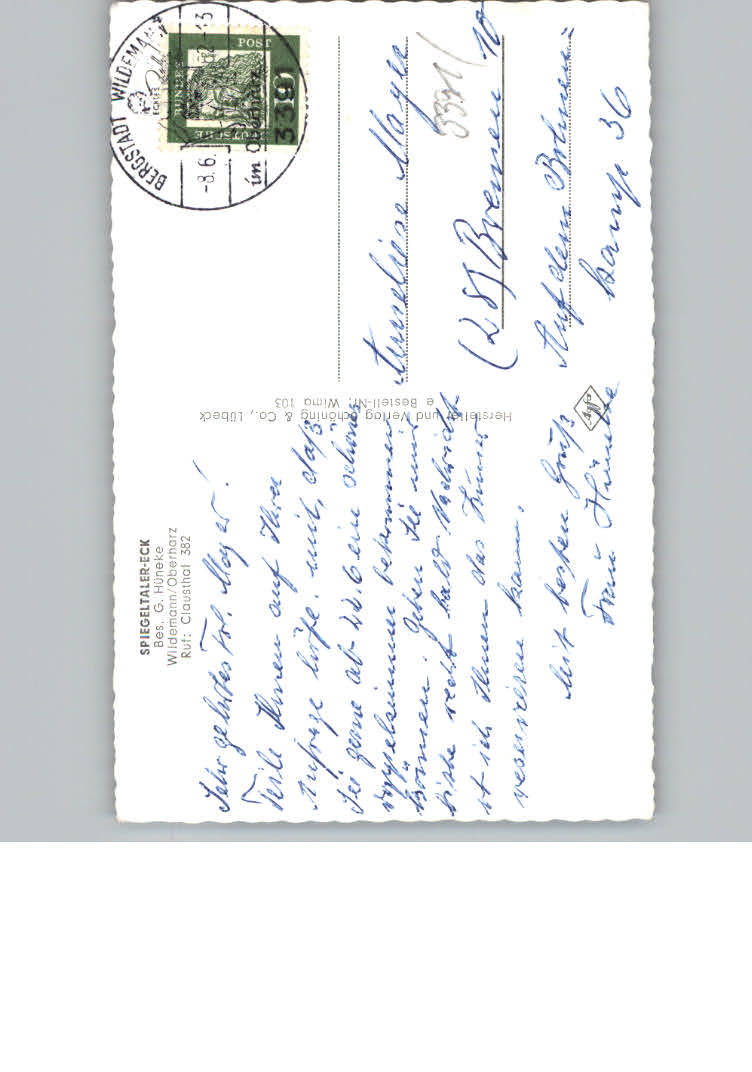 SPIEGELTALER-ECK
Bes. G. Hüneke
Wildemann/Oberharz
Ruf: Clausthal 382
Sehr geehrtes Frl. Mayer!
Teile Ihnen auf Ihre
Anfrage höfl. mit, daß
Sie gerne ab 22.6 ein schönes
Doppelzimmer bekommen
können. Geben Sie mir
bitte recht bald Nachricht
ich Ihnen das Zimmer
reservieren kann.
Mit besten Gruß
Frau Hüneke
Hersteller und Verlag Schöning & Co., Lübeck
e Bestell-Nr. Wima 103
BERGSTADT WILDEMANN
im Oberharz
3391
-8.6.
-13
DEUTSCHE BUNDESPOST
3391/
Anneliese Mayer
(28) Bremen 10
Auf dem Bohnen-
kamp 36